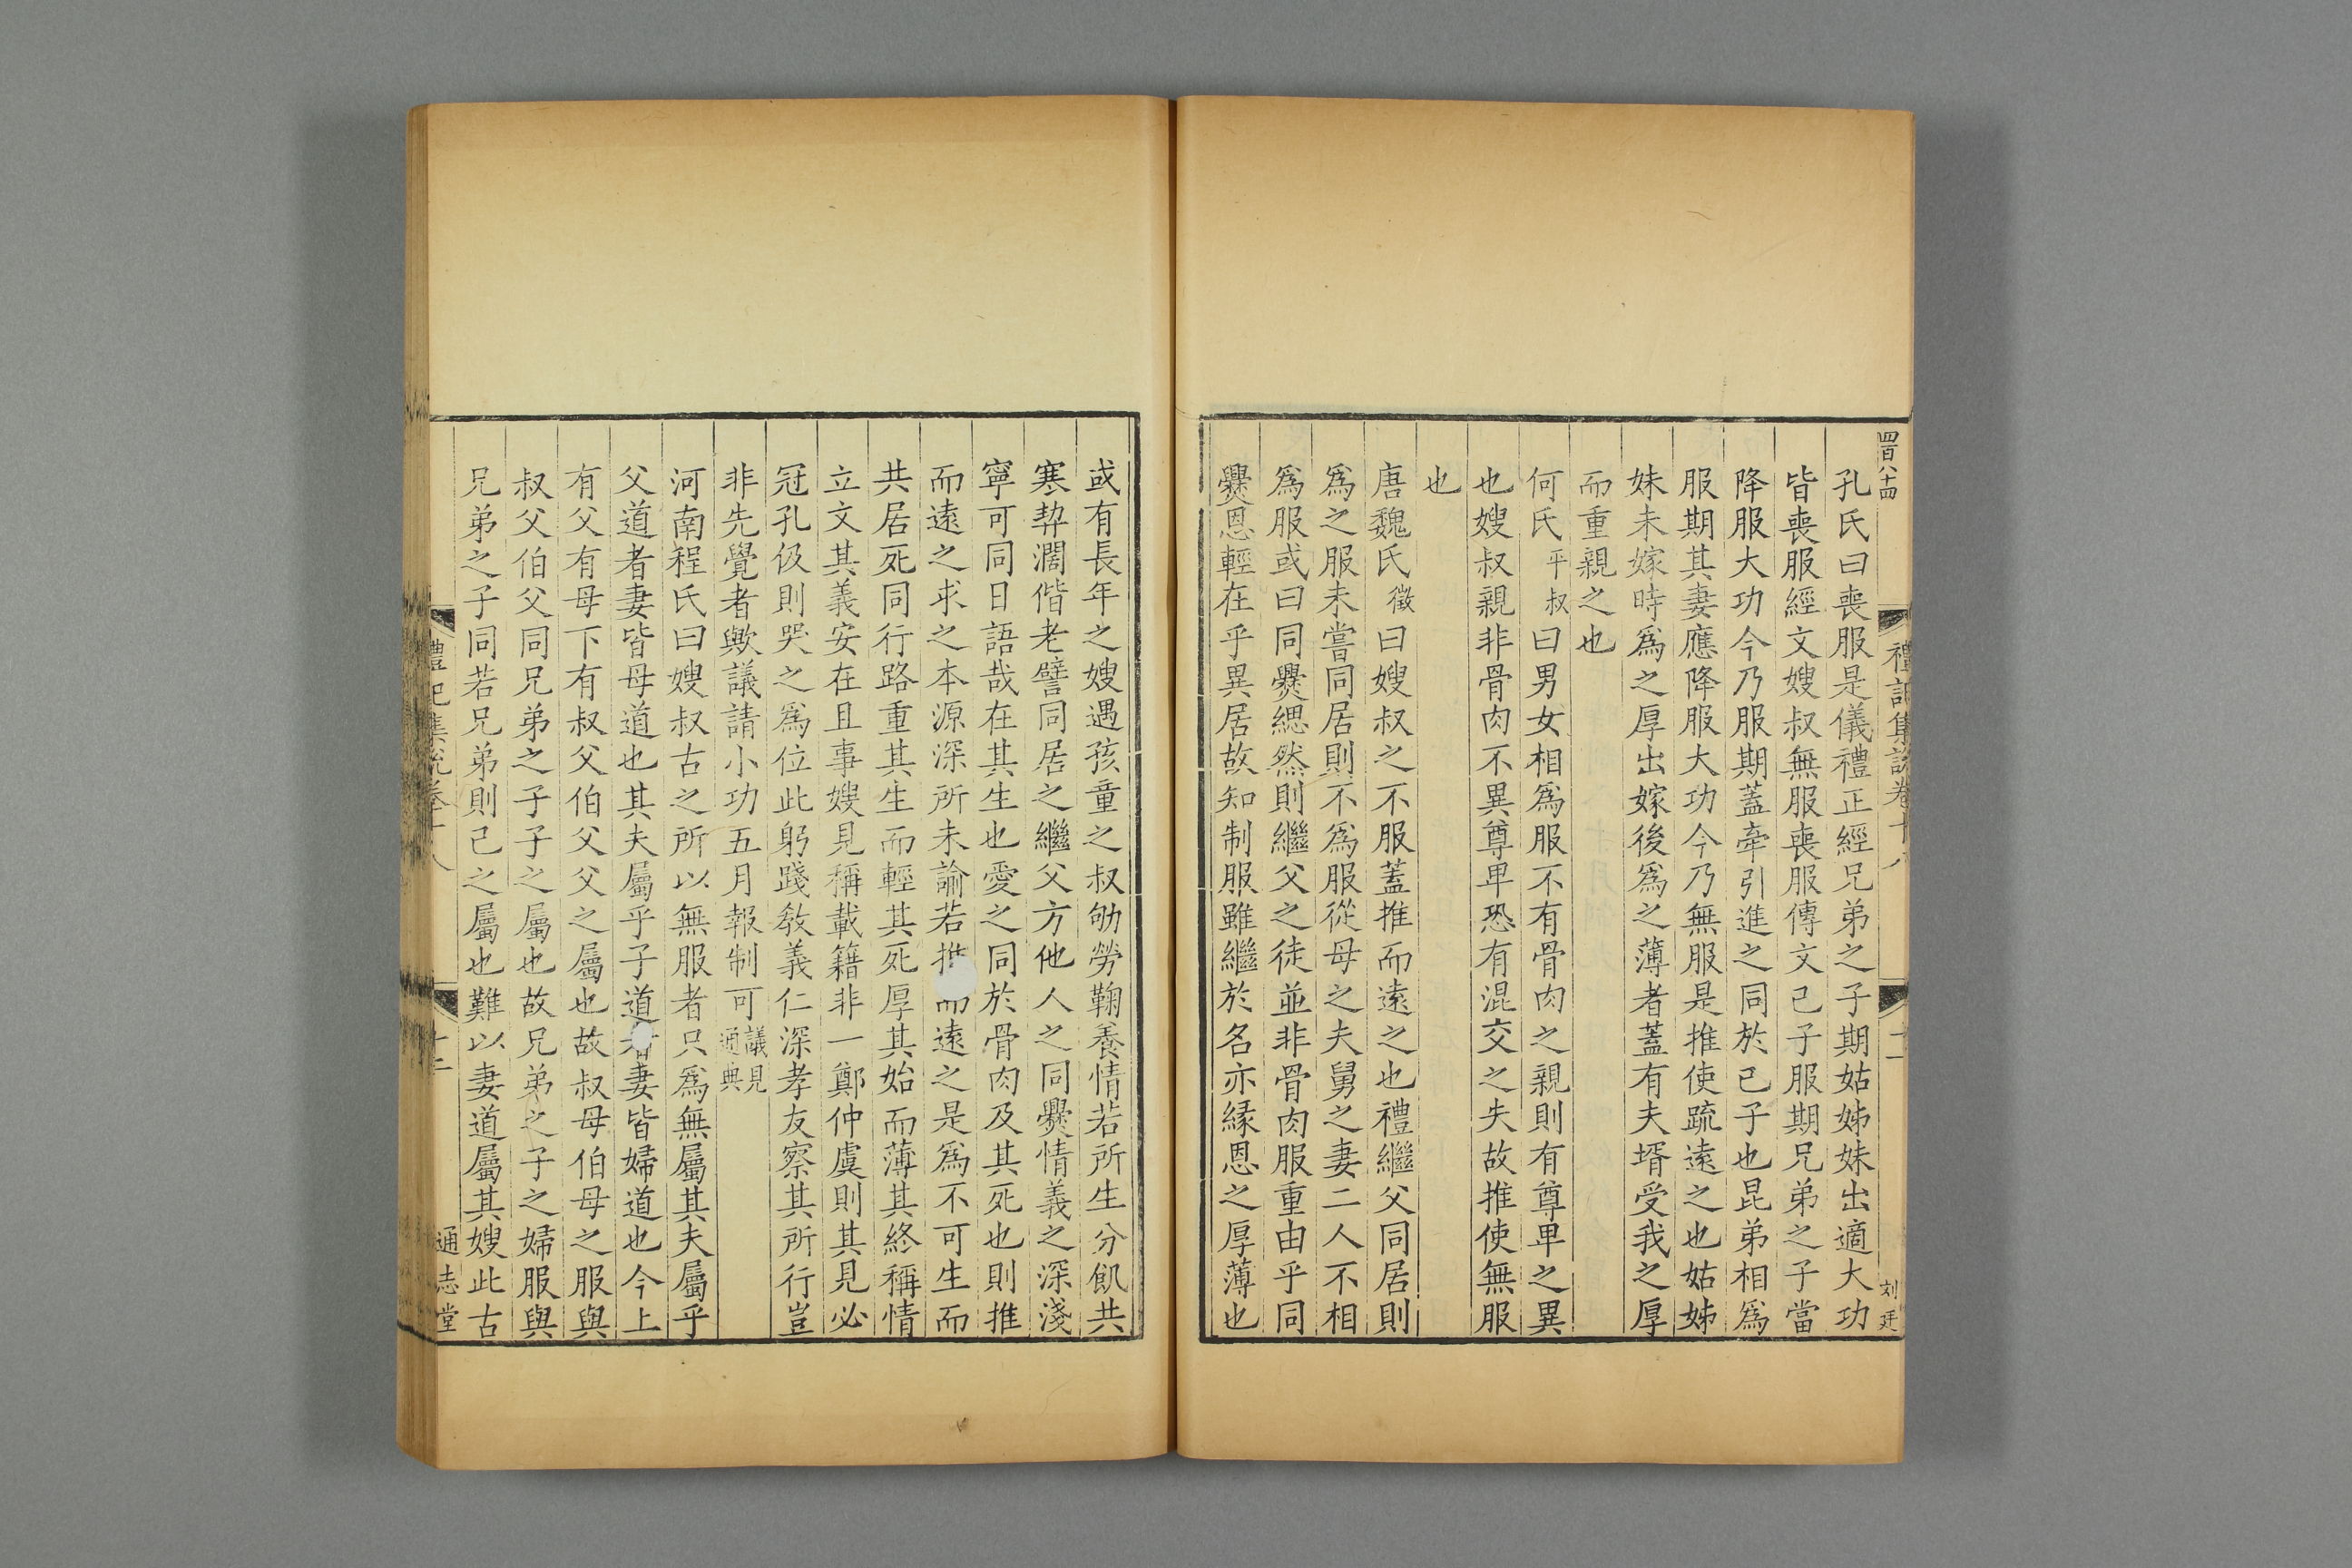 四百八十四
禮記集說卷十八
十一
刘廷
孔氏曰喪服是儀禮正經兄弟之子期姑姊妹出適大功
皆喪服經文嫂叔無服喪服傳文己子服期兄弟之子當
降服大功今乃服期蓋牽引進之同於己子也昆弟相爲
服期其妻應降服大功今乃無服是推使疏遠之也姑姊
妹未嫁時爲之厚出嫁後爲之薄者蓋有夫壻受我之厚
而重親之也
何氏平叔曰男女相爲服不有骨肉之親則有尊卑之異
也嫂叔親非骨肉不異尊卑恐有混交之失故推使無服
也
唐魏氏徵曰嫂叔之不服蓋推而遠之也禮繼父同居則
爲之服未嘗同居則不爲服從母之夫舅之妻二人不相
爲服或曰同爨緦然則繼父之徒並非骨肉服重由乎同
爨恩輕在乎異居故知制服雖繼於名亦緣恩之厚薄也
或有長年之嫂遇孩童之叔劬勞鞠養情若所生分飢共
寒契濶偕老譬同居之繼父方他人之同爨情義之深淺
寧可同日語哉在其生也愛之同於骨肉及其死也則推
而遠之求之本源深所未諭若推而遠之是爲不可生而
共居死同行路重其生而輕其死厚其始而薄其終稱情
立文其義安在且事嫂見稱載籍非一鄭仲虞則其見必
冠孔伋則哭之爲位此躬踐敎義仁深孝友察其所行豈
非先覺者歟議請小功五月報制可議見通典
河南程氏曰嫂叔古之所以無服者只爲無屬其夫屬乎
父道者妻皆母道也其夫屬乎子道者妻皆婦道也今上
有父有母下有叔父伯父父之屬也故叔母伯母之服與
叔父伯父同兄弟之子子之屬也故兄弟之子之婦服與
兄弟之子同若兄弟則己之屬也難以妻道屬其嫂此古
禮記集說卷十八
十二
通志堂